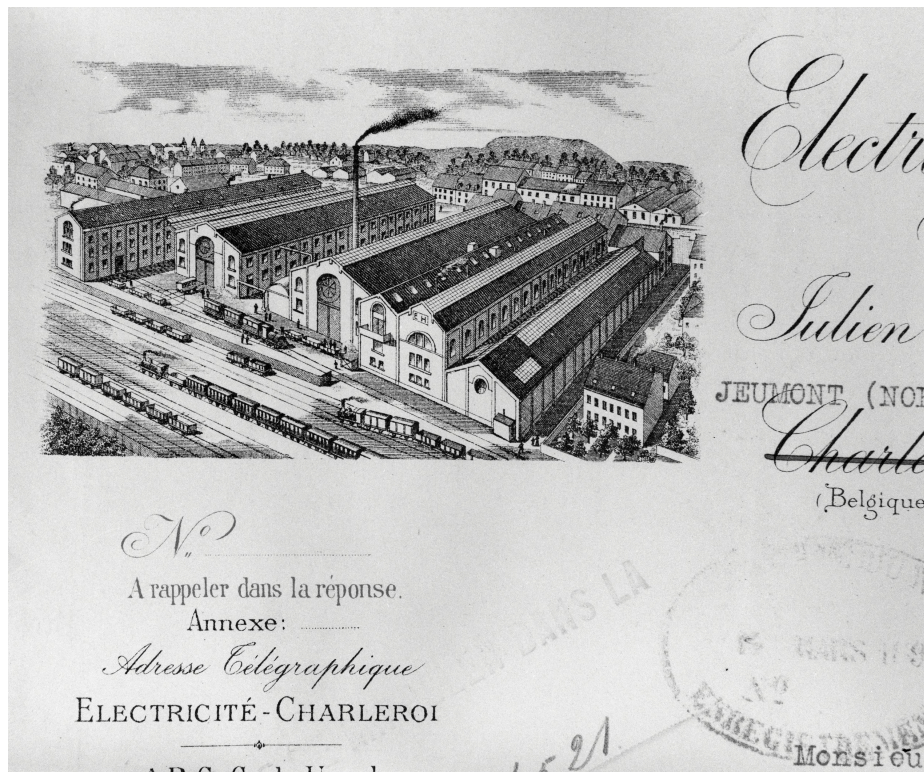 Electri
Julien
JEUMONT (NOR
Charle
(Belgique
E H
Nº
A rappeler dans la réponse.
Annexe:
Adresse Télégraphique
ELECTRICITÉ-CHARLEROI
DANS LA
MARS
Nº
ENREGISTREMENT
521.
Monsieu